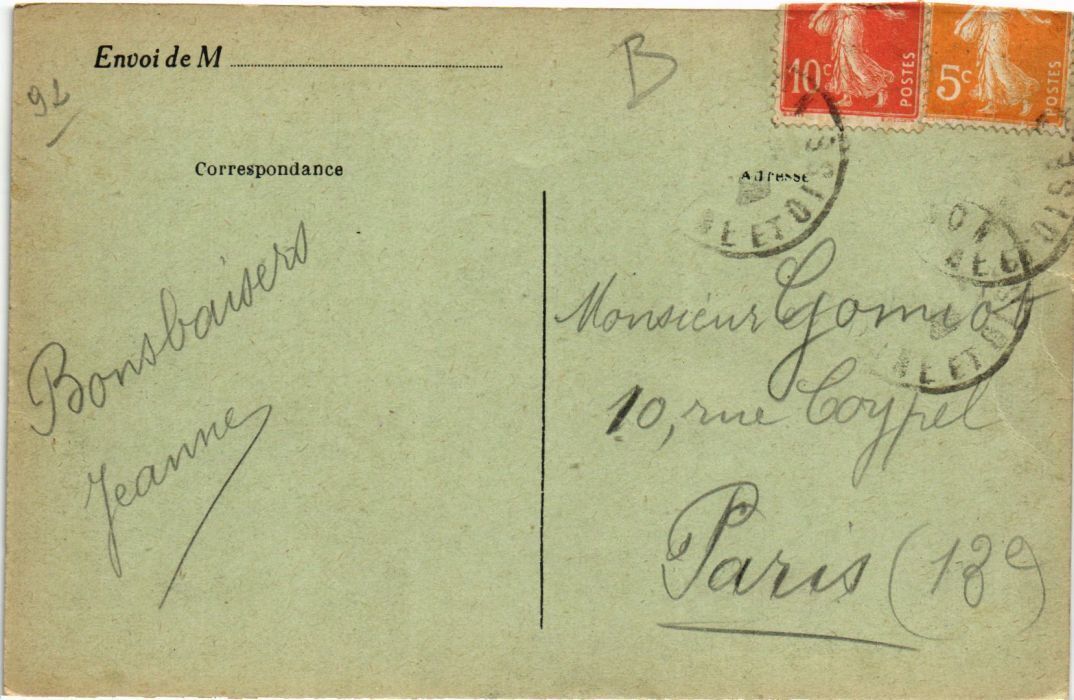 Envoi de M
B
91
10c POSTES
5c POSTES
Correspondance
Adresse
NE ET OISE
ET OISE
Bons baisers
Jeanne
Monsieur Gomiot
10, rue Coypel
Paris (13e)